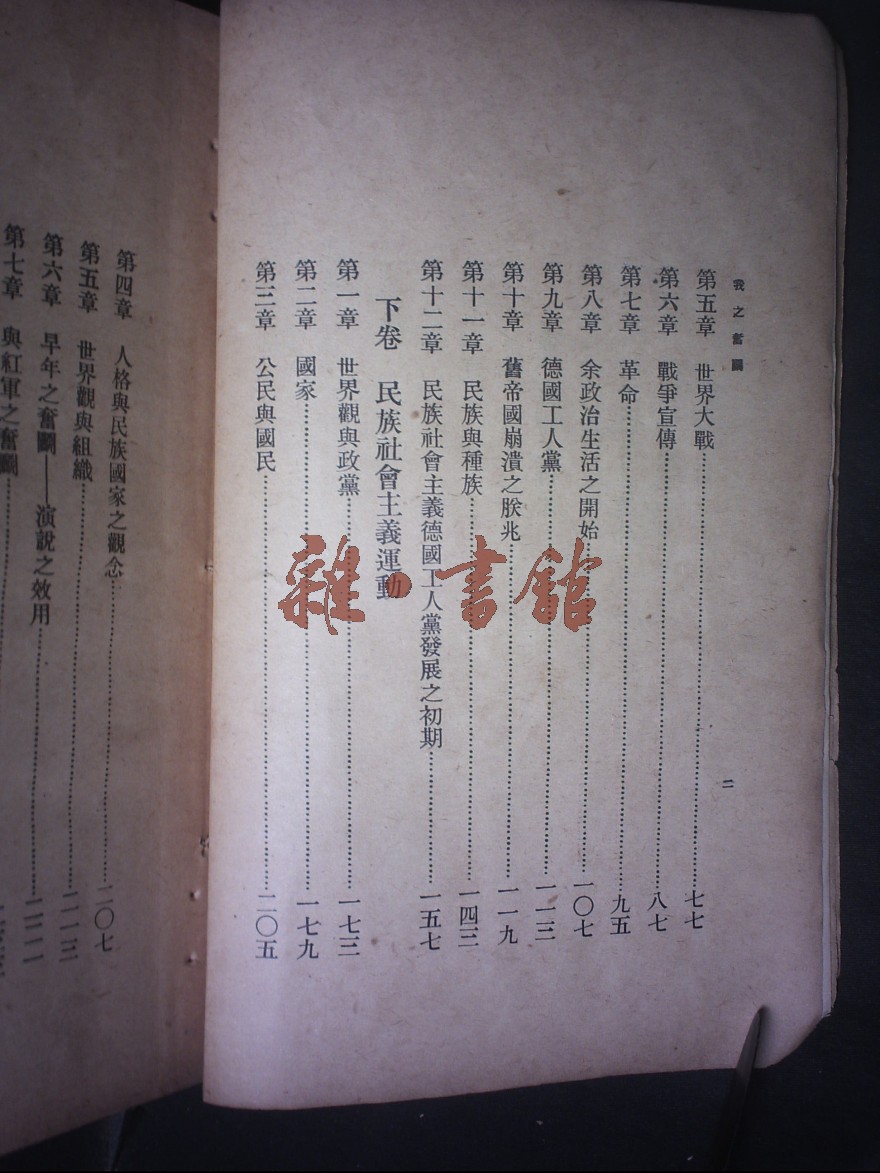 我之奮鬭
二
第五章 世界大戰……七七
第六章 戰爭宣傳……八七
第七章 革命……九五
第八章 余政治生活之開始……一〇七
第九章 德國工人黨……一一三
第十章 舊帝國崩潰之朕兆……一一九
第十一章 民族與種族……一四三
第十二章 民族社會主義德國工人黨發展之初期……一五七
下卷 民族社會主義運動
第一章 世界觀與政黨……一七三
第二章 國家……一七九
第三章 公民與國民……二〇五
第四章 人格與民族國家之觀念……二〇七
第五章 世界觀與組織……二一三
第六章 早年之奮鬭——演說之效用……二二一
第七章 與紅軍之奮鬭……
雜·書館